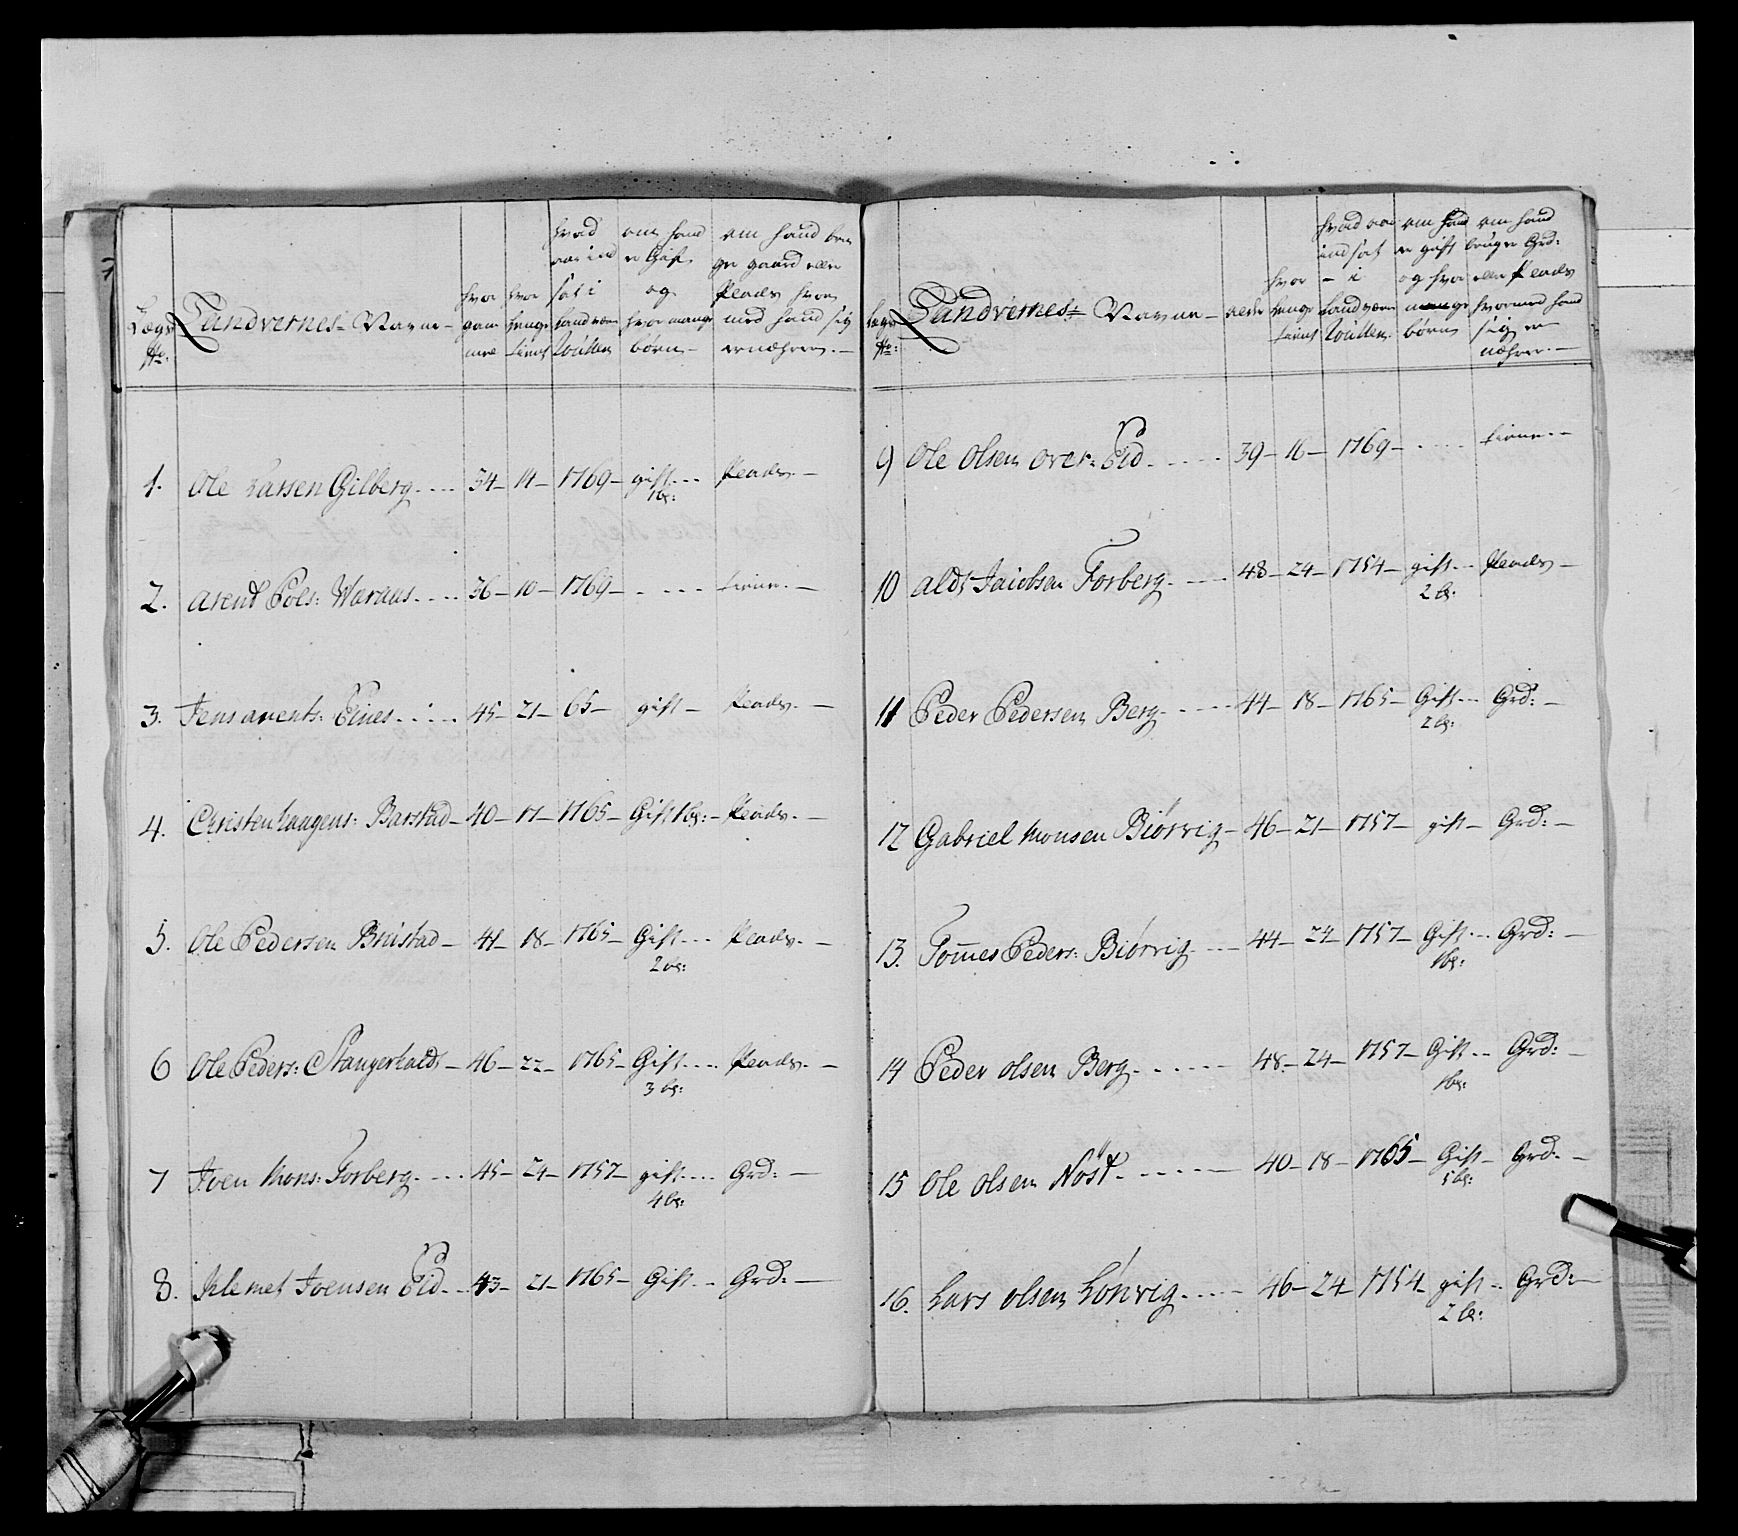 Lægs No:
Landvernes Navne
hvor gam mel
hvor lenge tient
hvad aar ind sat i Landværn Roullen
om hand er Gift og hvor mange børn
om hand bru ger gaard eller Plads hvor med hand sig ernæhrer.
1. Ole Larsen Gilberg .... 34 - 14 - 1769 - gift ... Plads. -
1 b:
2. Arent Pols: Waraas .... 36 - 10 - 1769 - .... tiener. -
3. Jens arents: Eines .... 45 - 21 - 65 - gift - Plads. -
4. Christen haagens: Barstad - 40 - 17 - 1765 - Gift 1 b: - Plads. -
5. Ole Pedersen Brustad - 41 - 18 - 1765 - Gift ... Plads. -
2 b:
6 Ole Peders: Stangerhold - 46 - 22 - 1765 - Gift .... Plads. -
3 b:
7 Joen Mons: Forberg .... 45 - 24 - 1757 - gift .... Grd: -
4 b:
8. Klemet Joensen Eid .. 43 - 21 - 1765 - Gift .. Grd: -
Lægs No:
Landvernes Navne -
alder
hvor lenge tient
hvad aar indsat - i Landværn Roullen.
om hand er gift og hvor mange børn
om hand bruger Grd: eller Plads hvormed hand sig er næhrer. -
9 Ole Olsen over: Eid ..... 39 - 16 - 1769 - ..... tiener. -
10 Alds Jacobsen Forberg .... 48 - 24 - 1754 - gift ... Plads -
2 b:
11 Peder Pedersen Berg ..... 44 - 18 - 1765 - Gift ... Grd: -
2 b:
12 Gabriel Monsen Biørvig - 46 - 21 - 1757 - gift - Grd: -
13. Tom̅es Peders: Biørvig ... 44 - 24 - 1757 - Gift ... Grd: -
1 b:
14 Peder olsen Berg ...... 48 - 24 - 1757 - Gift .. Grd: -
1 b:
15 Ole olsen Nöst ..... 40 - 18 - 1765 - Gift - Grd: -
5 b:
16. Lars olsen Lönvig .... 46 - 24 - 1754 - gift .. Grd: -
2 b: